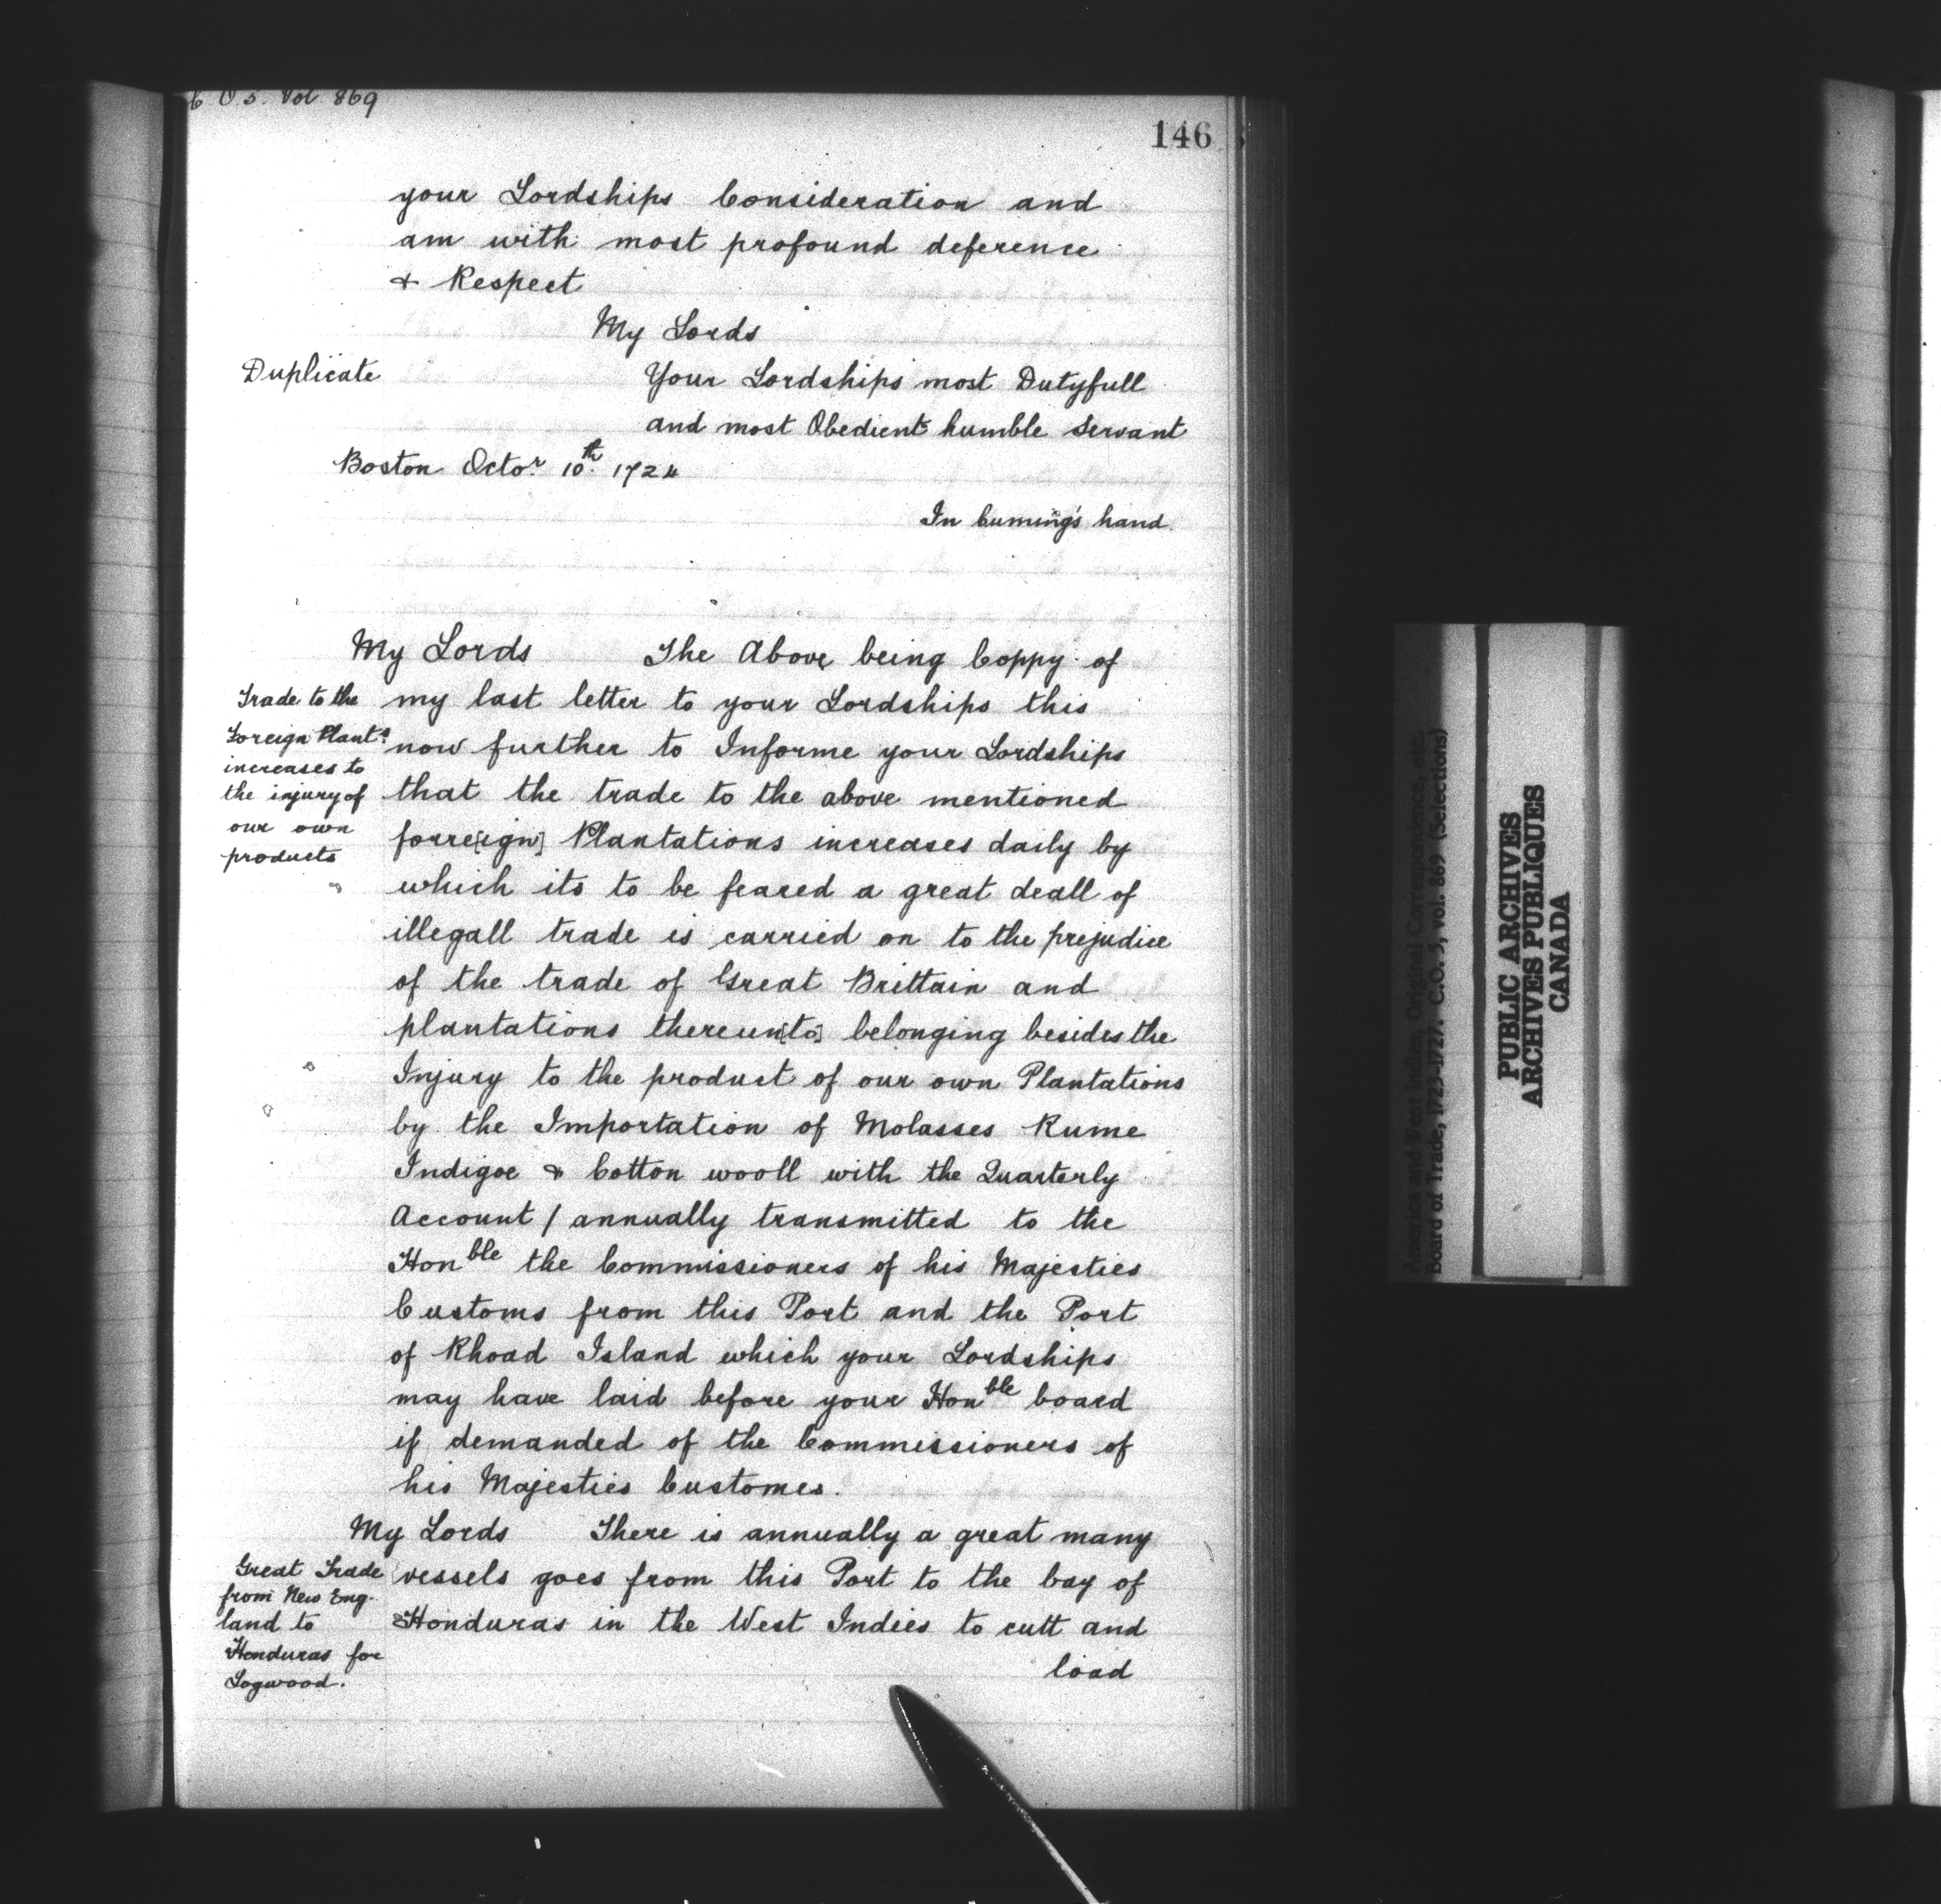 C O.5. Vol. 869
146
your Lordships Consideration and
am with most profound deference
& Respect
My Lords
Duplicate
Your Lordships most Dutyfull
and most Obedient humble Servant
Boston Octor 10th 1724
In Cuming's hand.
My Lords The Above being Coppy of
my last letter to your Lordships this
now further to Informe your Lordships
that the trade to the above mentioned
forre[ign] Plantations increases daily by
which its to be feared a great deall of
illegall trade is carried on to the prejudice
of the trade of Great Brittain and
plantations thereun[to] belonging besides the
Injury to the product of our own Plantations
by the Importation of Molasses Rume
Indigoe & Cotton wooll with the Quarterly
Account / annually transmitted to the
Honble the Commissioners of his Majesties
Customs from this Port and the Port
of Rhoad Island which your Lordships
may have laid before your Honble board
if demanded of the Commissioners of
his Majesties Customes.
Trade to the
Foreign Plants
increases to
the injury of
our own
products
My Lords There is annually a great many
vessels goes from this Port to the bay of
Honduras in the West Indies to cutt and
load
Great Trade
from New Eng-
land to
Honduras for
Logwood.
America and West Indies, Original Correspondence, etc.
Board of Trade, 1723-1727. C.O. 5, vol. 869 (Selections)
PUBLIC ARCHIVES
ARCHIVES PUBLIQUES
CANADA